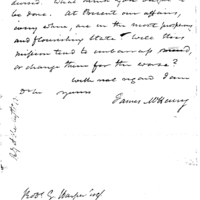 desired. What think you ought to
be done. At Present our affairs,
every where, are in the most prosperous
and flourishing state. Will this
mission tend to embarrass
or change them for the worse?
With real regard I am
yours
James McHenry
Robt G. Harper Esq